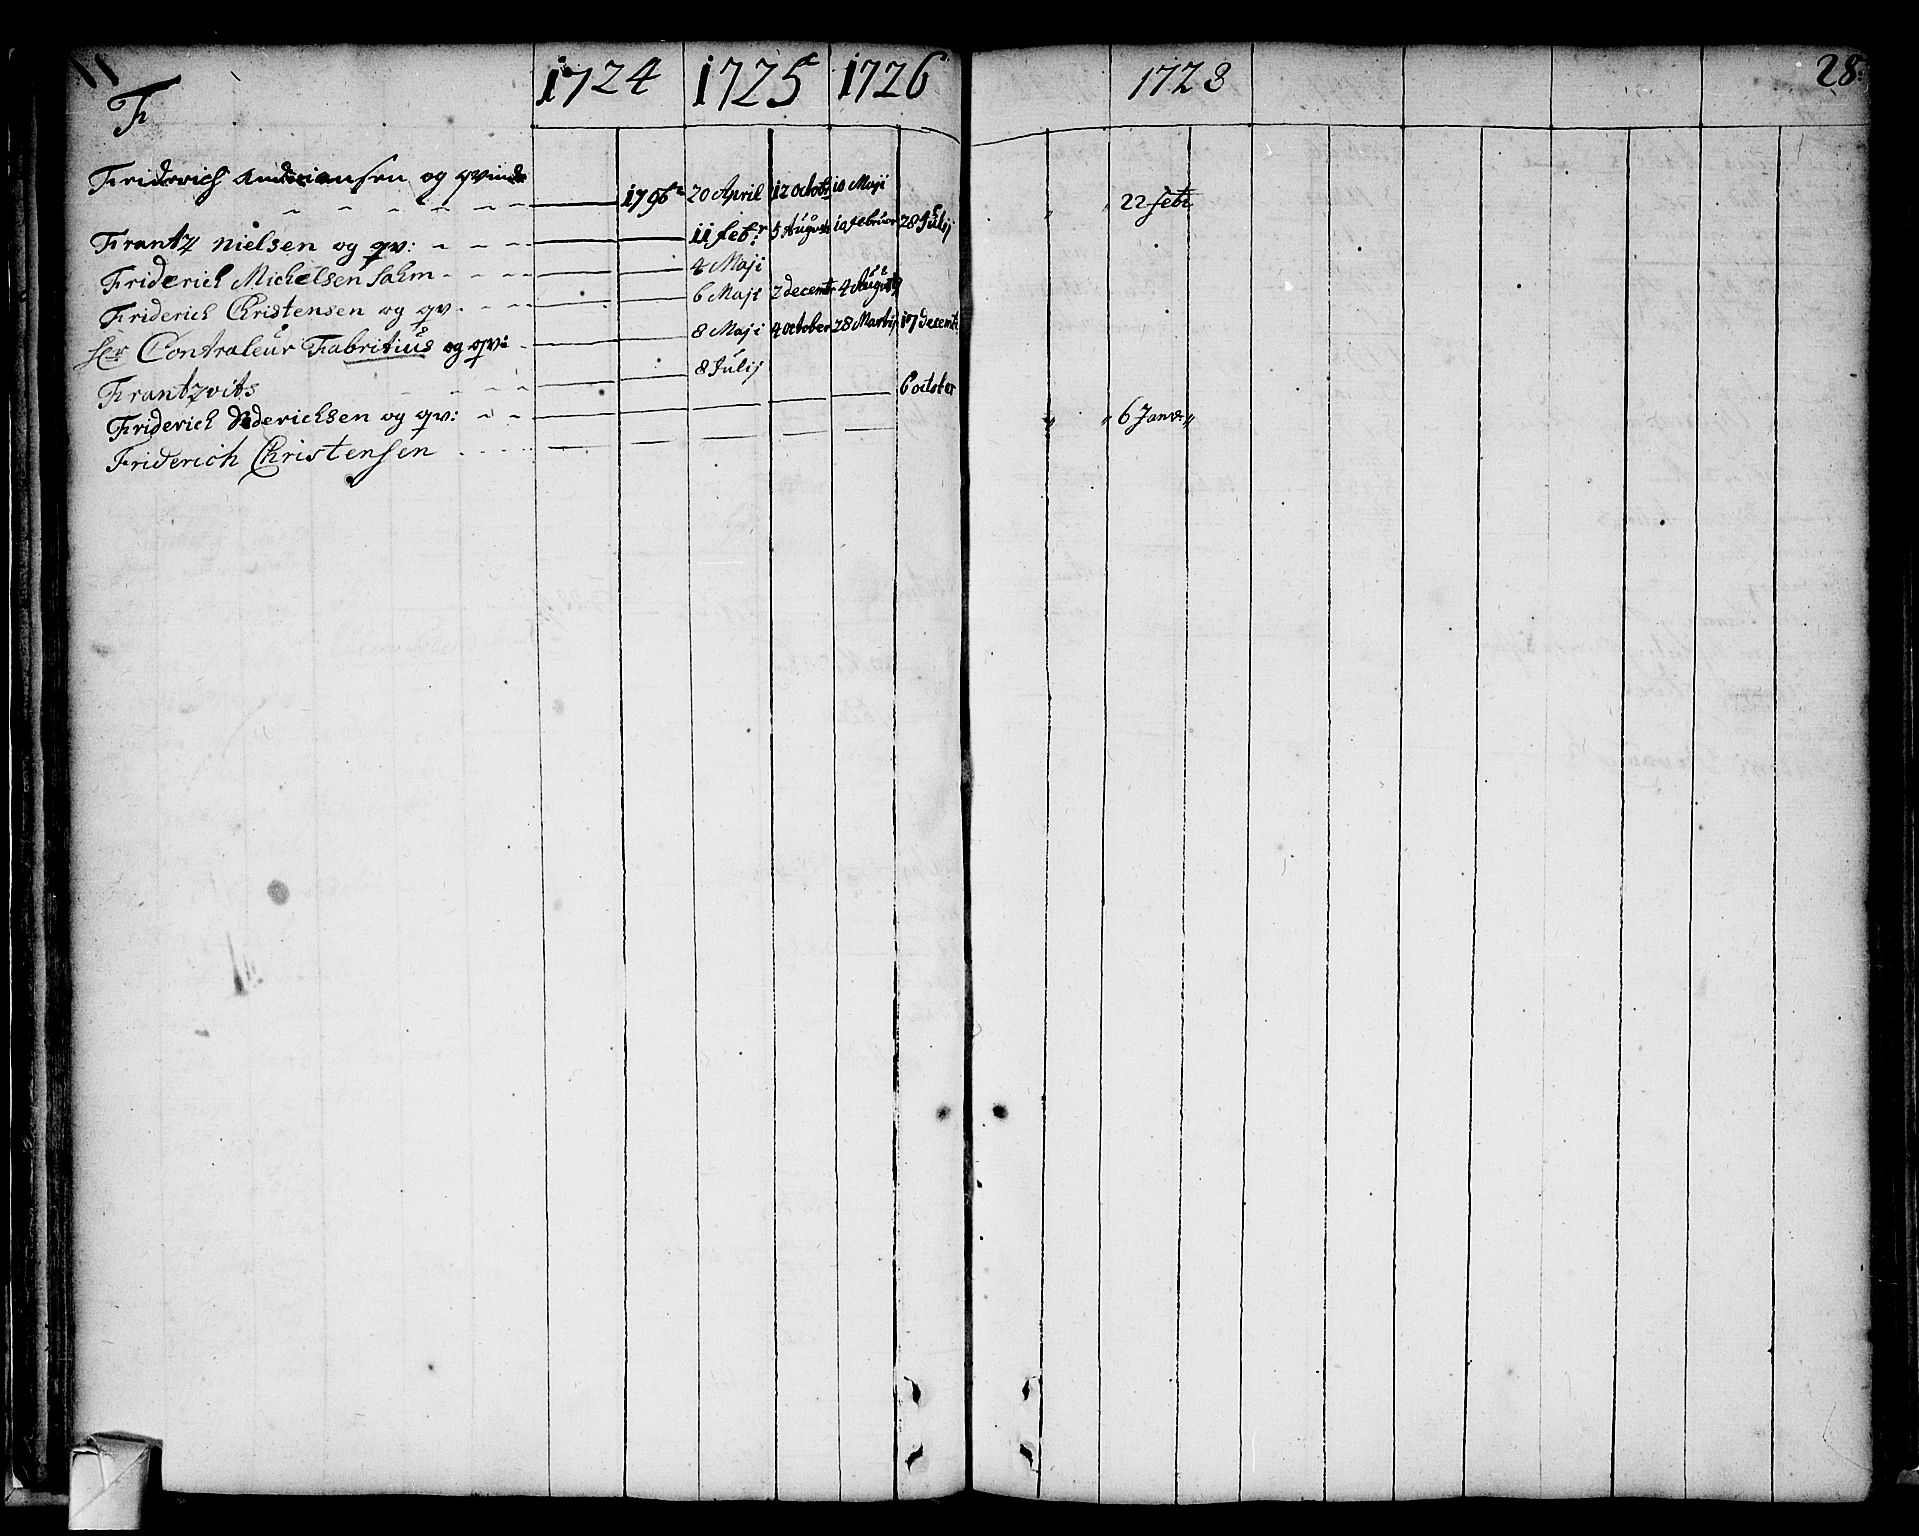 F 1724 1725 1726 1728 28
Friderich Andriansen og qvinde
20 April 12 octobr 10 Maji 22 febr
Frantz Nielsen og qv: 11 febr: 5 Augusti 10 februar 28 Julij
Friderich Michelsen Sahm 4 Maji
Friderich Christensen og qv. 6 Maji 2 decembr 4 Augusti
Sr Contraleur Fabritius og qv: 8 Maji 4 october 28 Martij 17 decembr
Frantz vits 8 Julij
Friderich Dederichsen og qv: 6 october
Friderich Christensen 6 Janr